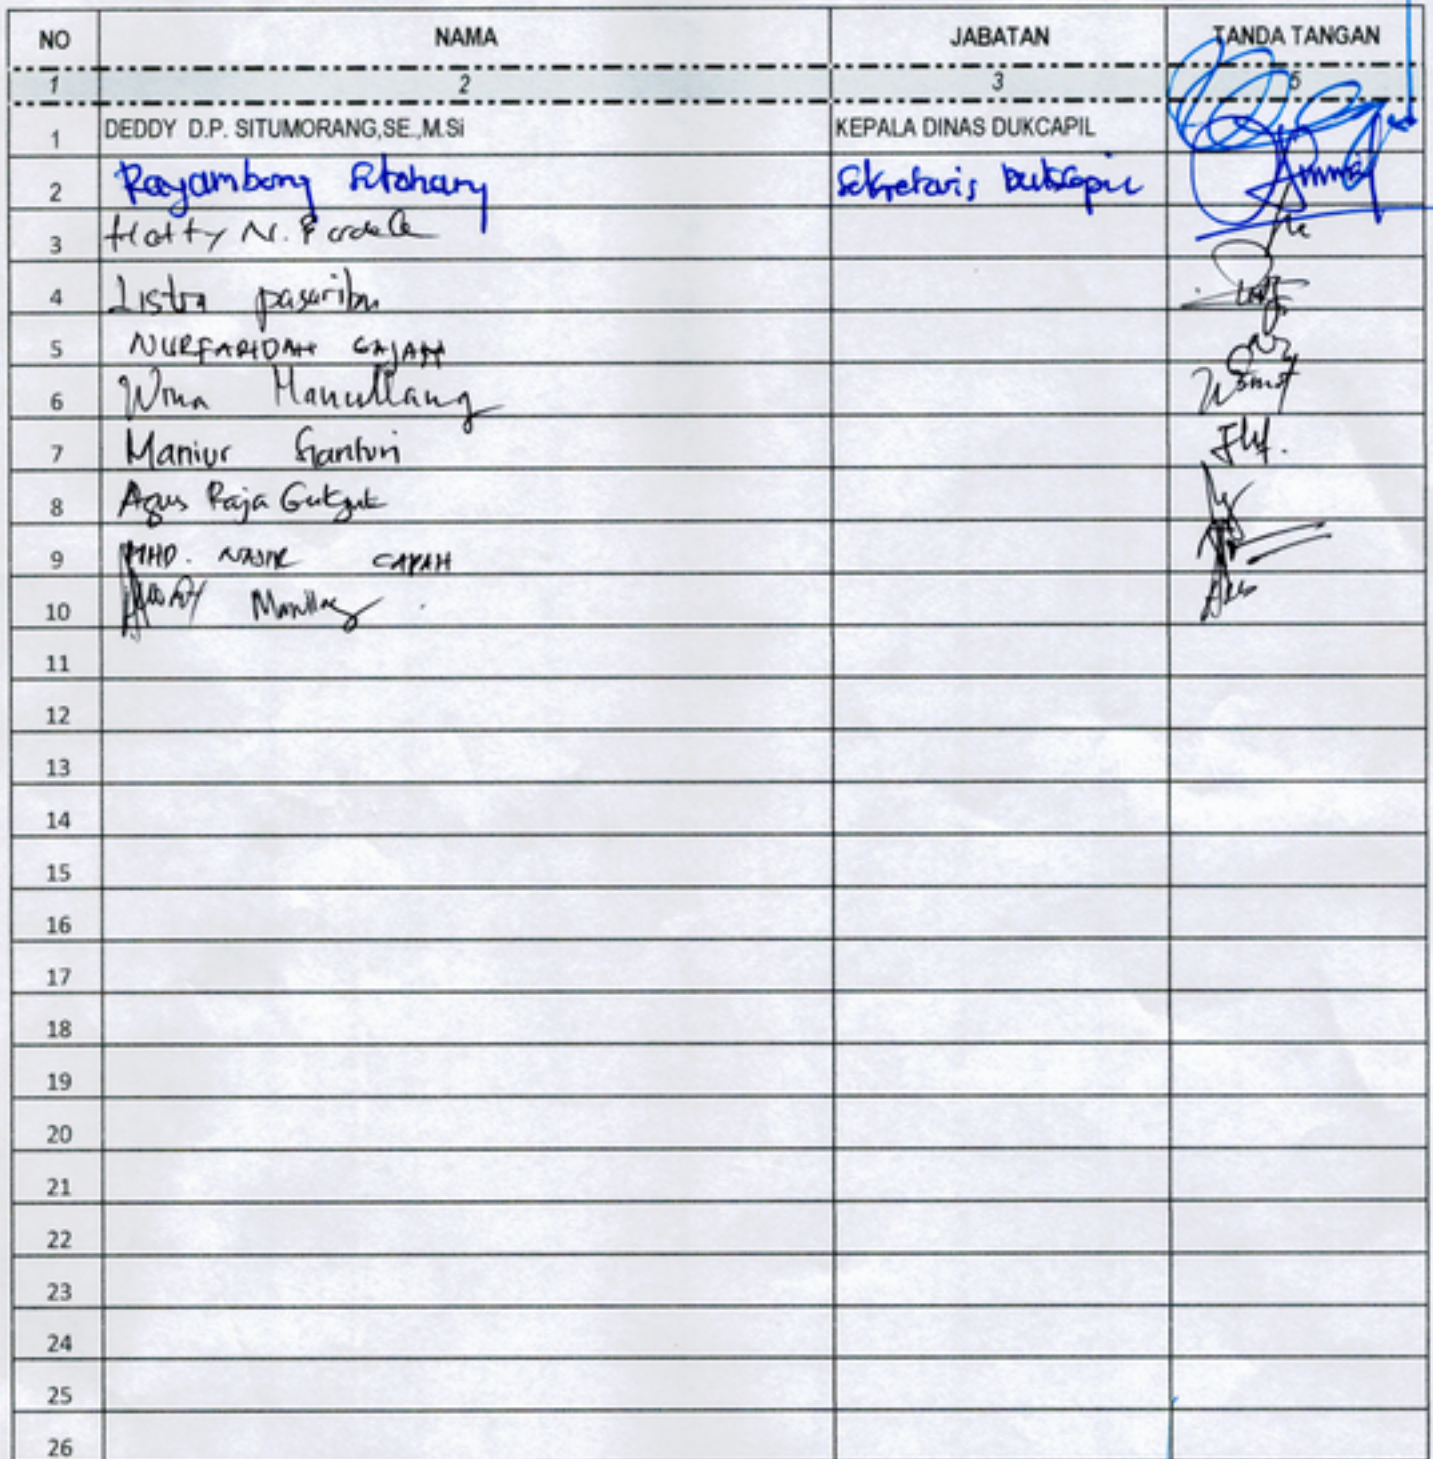 NO NAMA JABATAN TANDA TANGAN
1 2 3 5
1 DEDDY D.P. SITUMORANG,SE.,M.Si KEPALA DINAS DUKCAPIL
2 Sekretaris Dukcapil
3 Hotty N.
4 Listra pasaribu
5 NURFARIDAH GAJAH
6 Wina Manullang
7 Maniur Sianturi
8 Agus Raja Gukguk
9 MHD. NASIR CAPAH
10
11
12
13
14
15
16
17
18
19
20
21
22
23
24
25
26